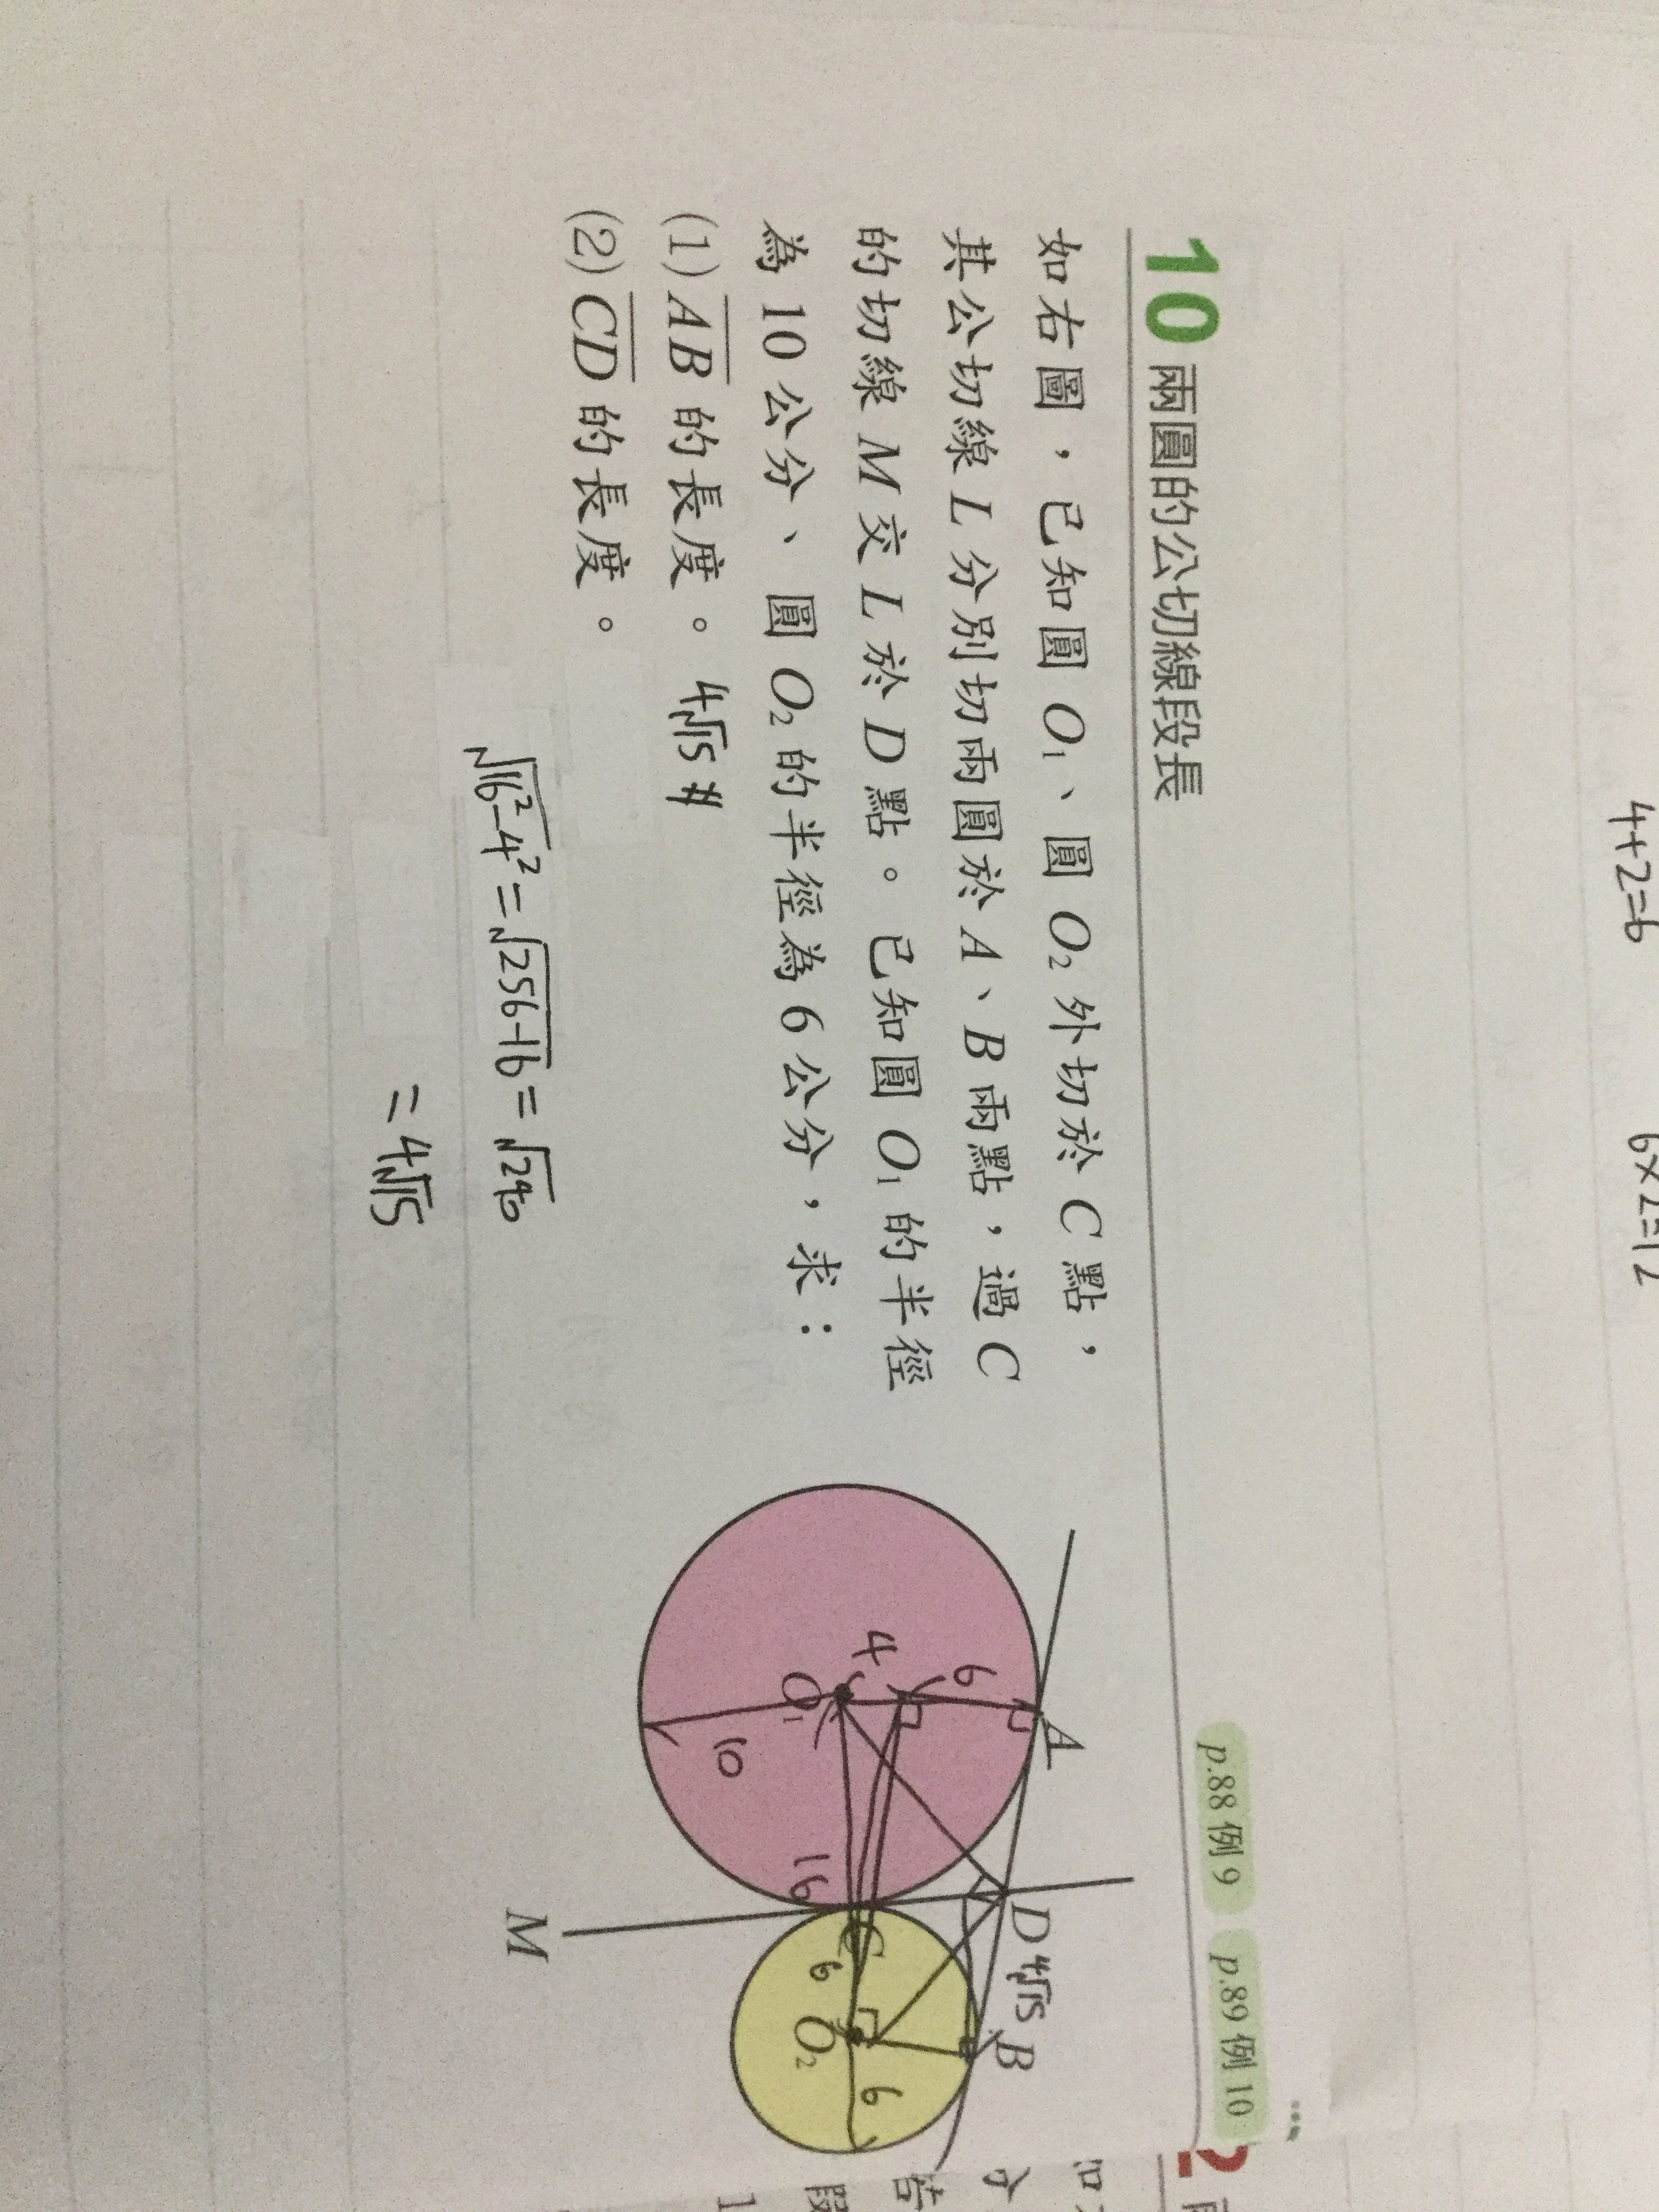 4+2=6 6×2=12
10 兩圓的公切線段長
p.88 例 9 p.89 例 10
如右圖，已知圓 O₁、圓 O₂ 外切於 C 點，
其公切線 L 分別切兩圓於 A、B 兩點，過 C
的切線 M 交 L 於 D 點。已知圓 O₁ 的半徑
為 10 公分、圓 O₂ 的半徑為 6 公分，求：
(1) AB 的長度。 4√15 #
(2) CD 的長度。
√16²-4² = √256-16 = √240
= 4√15
A
6
D 4√15 B
4
O₁
10
16
C
6
O₂
6
M
2